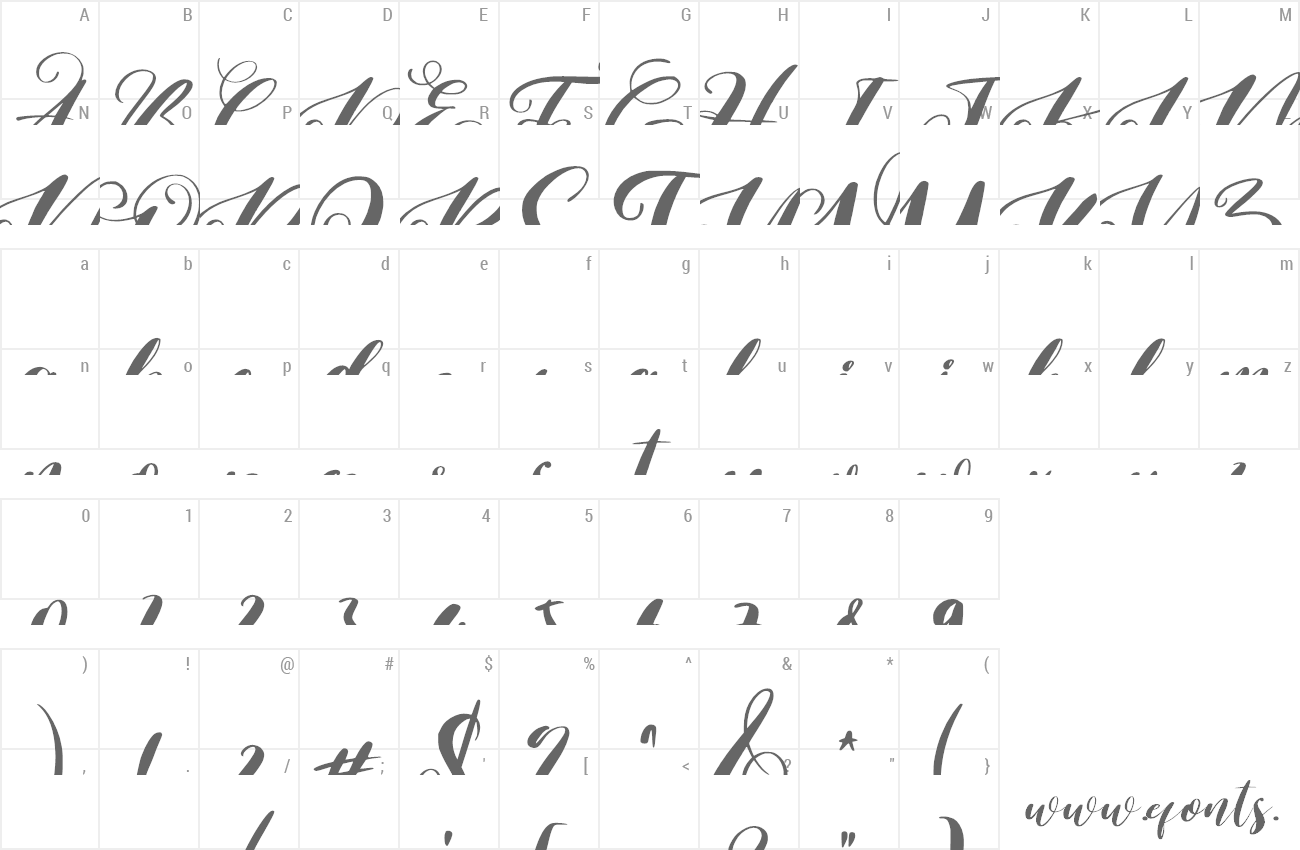 A B C D E F G H I J K L M
N O P Q R S T U V W X Y Z
a b c d e f g h i j k l m
n o p q r s t u v w x y z
0 1 2 3 4 5 6 7 8 9
) ! @ # $ % ^ & * (
, . / ; ' [ < ? " }
www.efonts.